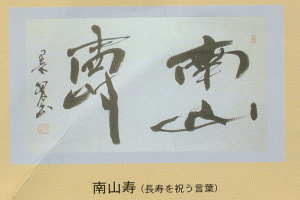 南山
寿
南山寿（長寿を祝う言葉）